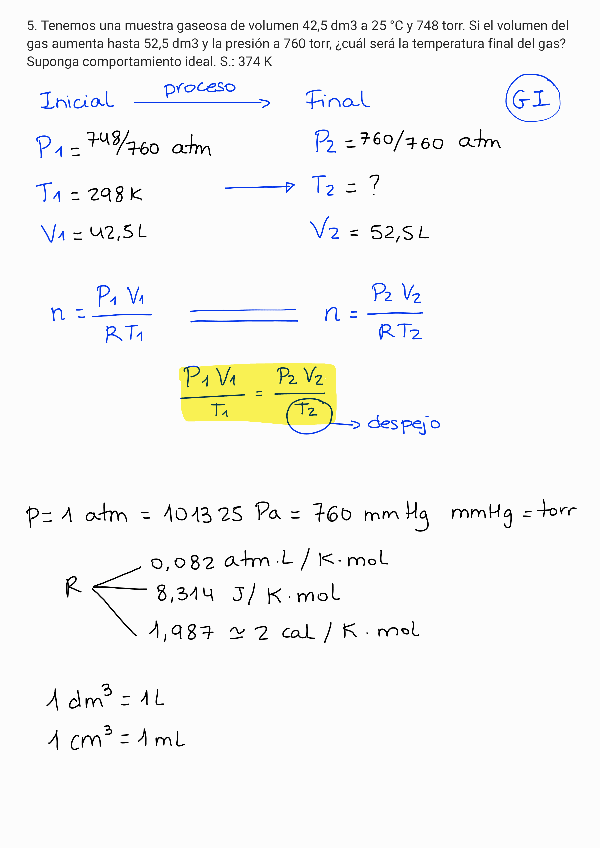 5. Tenemos una muestra gaseosa de volumen 42,5 dm3 a 25 °C y 748 torr. Si el volumen del
gas aumenta hasta 52,5 dm3 y la presión a 760 torr, ¿cuál será la temperatura final del gas?
Suponga comportamiento ideal. S.: 374 K
Inicial proceso Final GI
P1 = 748/760 atm P2 = 760/760 atm
T1 = 298 K T2 = ?
V1 = 42,5 L V2 = 52,5 L
n = P1 V1 / R T1 n = P2 V2 / R T2
P1 V1 / T1 = P2 V2 / T2
despejo
P = 1 atm = 101325 Pa = 760 mm Hg mmHg = torr
0,082 atm·L / K·mol
R 8,314 J / K·mol
1,987 ≃ 2 cal / K·mol
1 dm³ = 1L
1 cm³ = 1 mL